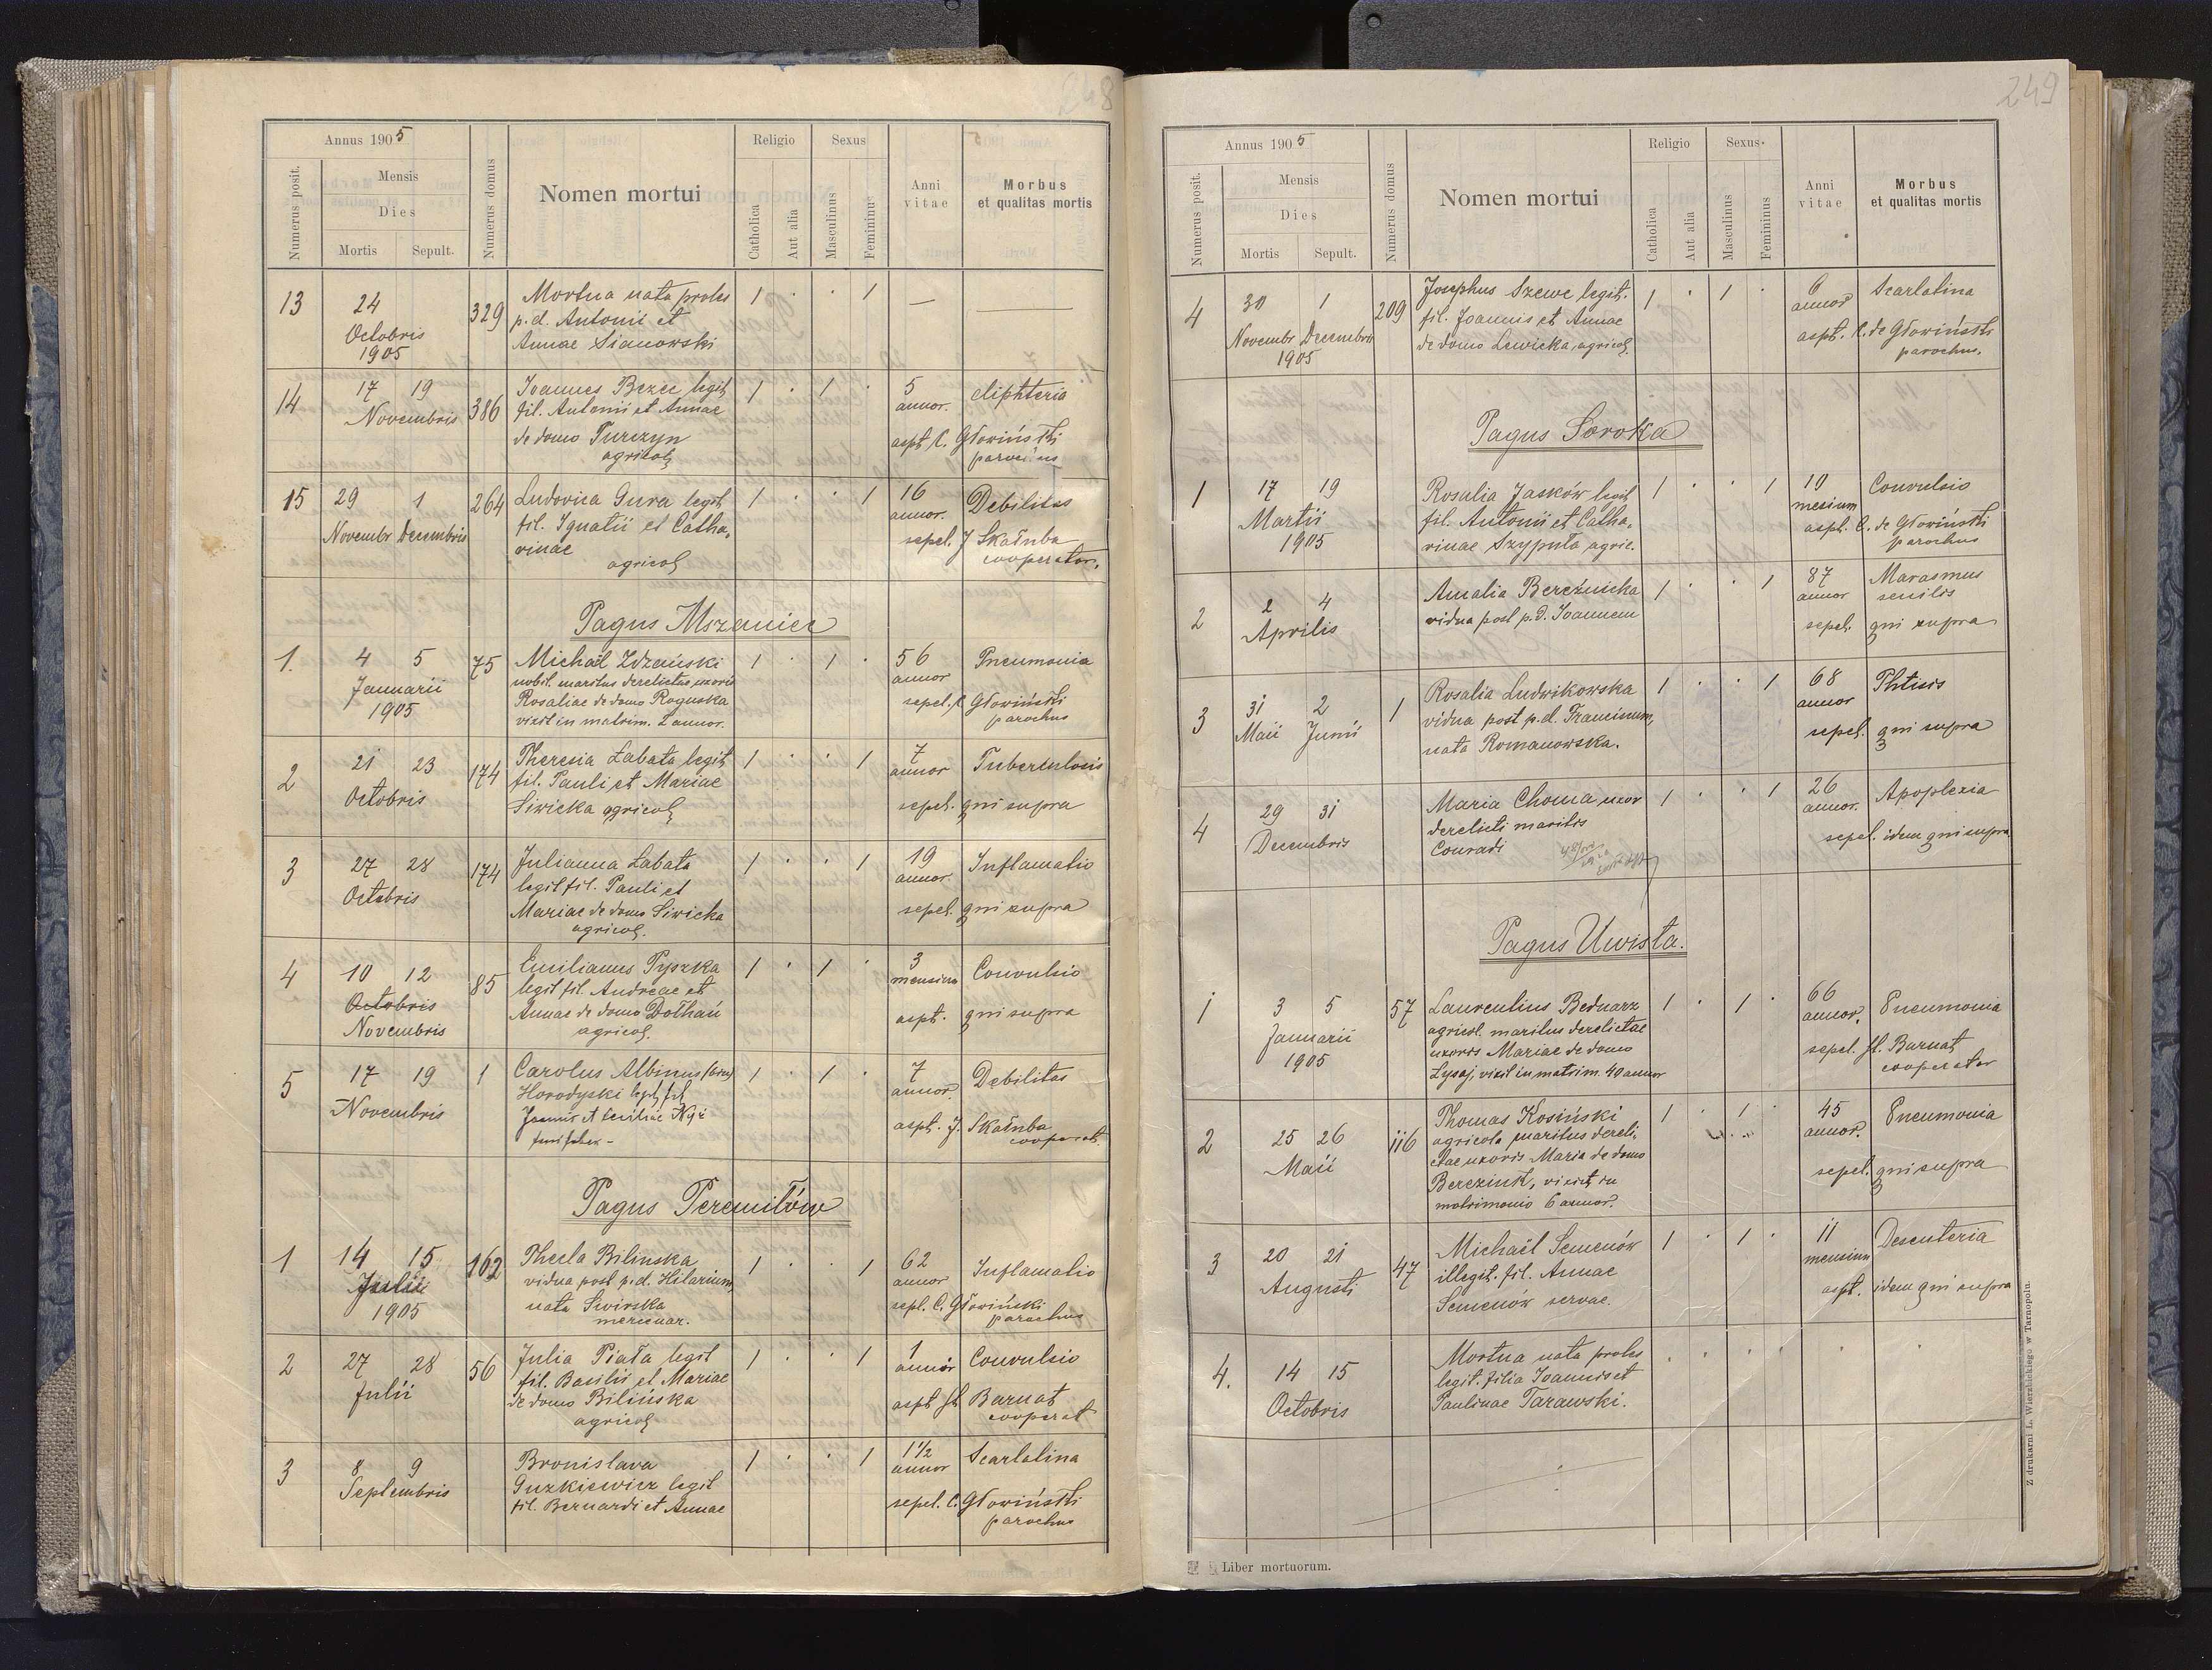 248
Annus 1905
Numerus posit.
Mensis
Dies
Mortis Sepult.
Numerus domus
Nomen mortui
Religio
Catholica
Aut alia
Sexus
Masculinus
Femininus
Anni
vitae
Morbus
et qualitas mortis
13 24 329 Mortua nata proles 1 · · 1 —
Octobris p. d. Antonii et
1905 Annae Sianowski
14 17 19 386 Joannes Bezec legit. 1 · 1 · 5 diphteria
Novembris fil. Antonii et Annae annor.
de domo Turczyn aspt. C. Głowiński
agricol. parochus
15 29 1 264 Ludovica Gura legit. 1 · · 1 16 Debilitas
Novembr Decembris fil. Ignatii et Catha- annor.
rinae sepel. J Skałuba
agricol. cooperator.
Pagus Mszaniec
1. 4 5 75 Michaël Zdzański 1 · 1 · 56 Pneumonia
Januarii nobil. maritus derelictae uxoris annor
1905 Rosaliae de domo Roguska sepel. C Głowiński
vixit in matrim. 2 annor. parochus
2 21 23 174 Theresia Łabata legit. 1 · · 1 7 Tuberculosis
Octobris fil. Pauli et Mariae annor
Siwicka agricol. sepel. qui supra
3 27 28 174 Julianna Łabata 1 · · 1 19 Inflamatio
Octobris legit fil. Pauli et annor.
Mariae de domo Siwicka sepel. qui supra
agricol.
4 10 12 85 Emilianus Pyszka 1 · 1 · 3 Convulsio
Octobris legit fil. Andreae et mensium
Novembris Annae de domo Dołhań aspt. qui supra
agricol.
5 17 19 1 Carolus Albinus 1 · 1 · 7 Debilitas
Novembris Horodyski legit. fil. annor.
Joannis et Ceciliae aspt. J. Skałuba
cooperat.
Pagus Peremiłów
1 14 15 162 Thecla Bilinska 1 · · 1 62 Inflamatio
Julii vidua post p. d. Hilarium, annor
1905 nata Swirska sepl. C. Głowiński
mercenar. parochus
2 27 28 56 Julia Piała legit 1 · · 1 1 Convulsio
Julii fil. Basilii et Mariae annor
de domo Bilińska aspt St Barnat
agricol. cooperat
3 8 9 Bronislava 1 · · 1 1½ Scarlatina
Septembris Guzkiewicz legit annor
fil. Bernardi et Annae sepel. C. Głowiński
parochus
249
Annus 1905
Numerus posit.
Mensis
Dies
Mortis Sepult.
Numerus domus
Nomen mortui
Religio
Catholica
Aut alia
Sexus
Masculinus
Femininus
Anni
vitae
Morbus
et qualitas mortis
4 30 1 209 Josephus Szewc legit. 1 · 1 · 6 Scarlatina
Novembr Decembris fil. Joannis et Annae annor
1905 de domo Lewicka, agricol. aspt. C. de Głowiński
parochus.
Pagus Soroka
1 17 19 Rosalia Jasków legit 1 · · 1 10 Convulsio
Martii fil. Antonii et Catha- mesium
1905 rinae Szypuła agric. aspt. C. de Głowiński
parochus
2 2 4 Amalia Bereźnicka 1 · · 1 87 Marasmus
Aprilis vidua post p. d. Joannem annor senilis
sepel. qui supra
3 31 2 1 Rosalia Ludwikowska 1 · · 1 68 Phtisis
Maii Junii vidua post p. d. Franciscum, annor
nata Romanowska. sepel. qui supra
4 29 31 Maria Choma uxor 1 · · 1 26 Apoplexia
Decembris derelicti maritis annor.
Conradi sepel. idem qui supra
Pagus Uwisła.
1 3 5 57 Laurentius Bednarz 1 · 1 · 66 Pneumonia
Januarii agricol. maritus derelictae annor.
1905 uxoris Mariae de domo sepel. St. Barnat
Łysaj, vixit in matrim. 40 annor cooperator
2 25 26 116 Thomas Kosiński 1 · 1 · 45 Pneumonia
Maii agricola maritus dereli- annor.
ctae uxoris Maria de domo sepel. qui supra
Bereziuk, vixit in
matrimonio 6 annor.
3 20 21 47 Michaël Semenów 1 · 1 · 11 Desenteria
Augusti illegit. fil. Annae mensium
Semenów servae. aspt. idem qui supra
4. 14 15 Mortua nata proles
Octobris legit. filia Joannis et
Paulinae Tarawski.
Liber mortuorum.
Z drukarni L. Wierzbickiego w Tarnopolu.